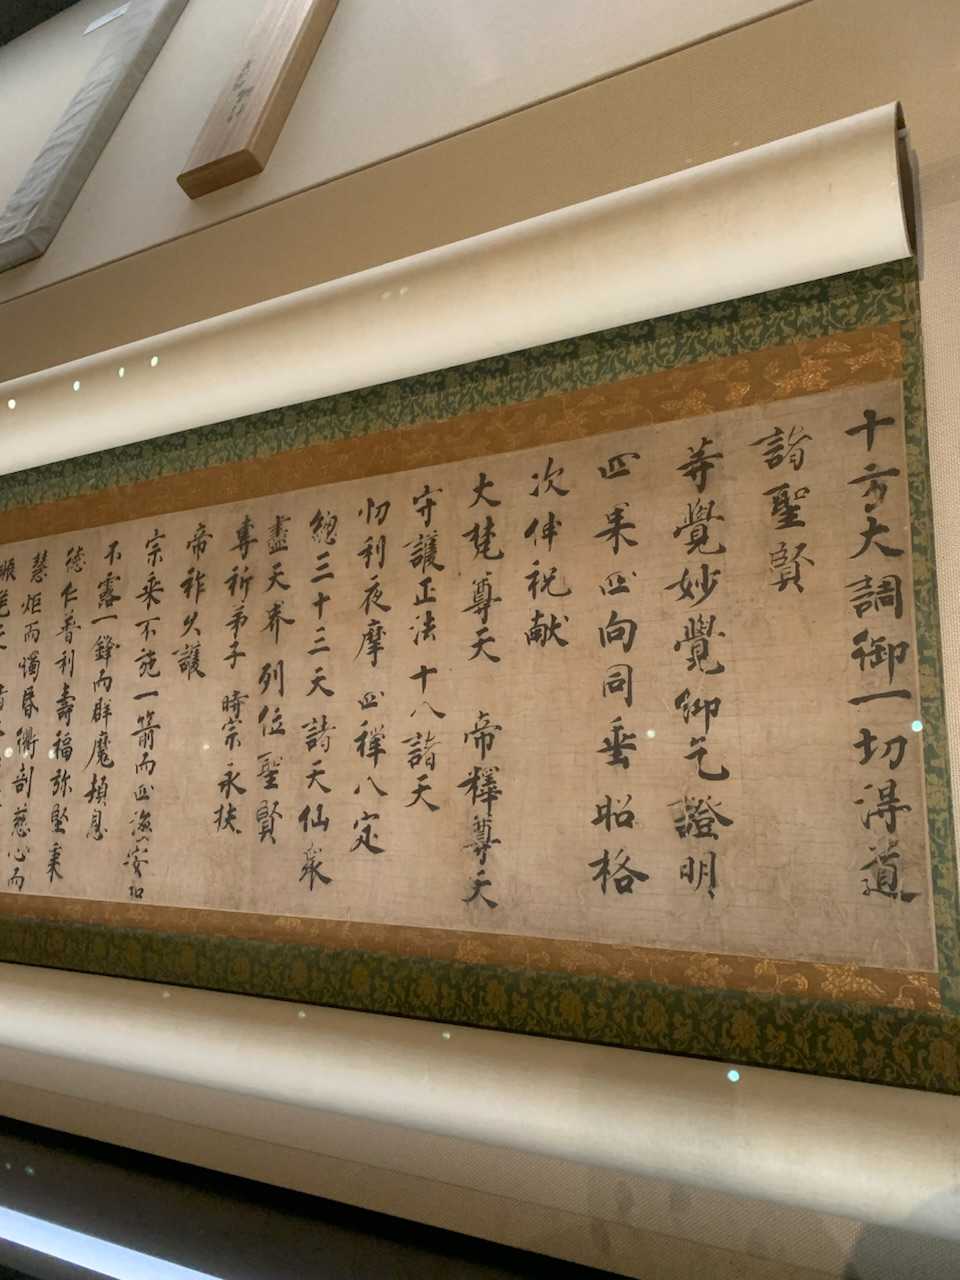 十方大調御一切得道
諸聖賢
等覺妙覺仰乞證明
四果四向同垂昭格
次伸祝献
大梵尊天 帝釋尊天
守護正法十八諸天
忉利夜摩四禅八定
總三十三天諸天仙衆
盡天界列位聖賢
專祈弟子時宗永扶
帝祚久護
宗乘不施一箭而四海安和
不露一鋒而群魔頓息
德仁普利壽福弥堅秉
慧炬而燭昏衢剖慈心而